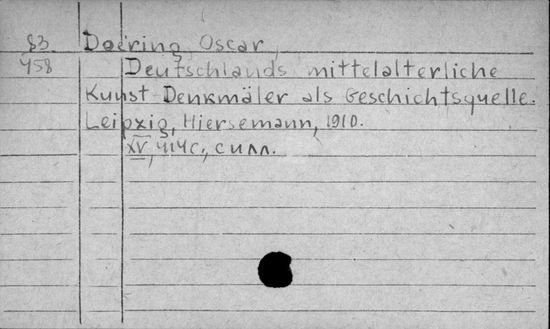 83 Doering, Oscar,
458 Deutschlands mittelalterliche
Kunst-Denkmäler als Geschichtsquelle.
Leipzig, Hiersemann, 1910.
XV, 414 с., с илл.